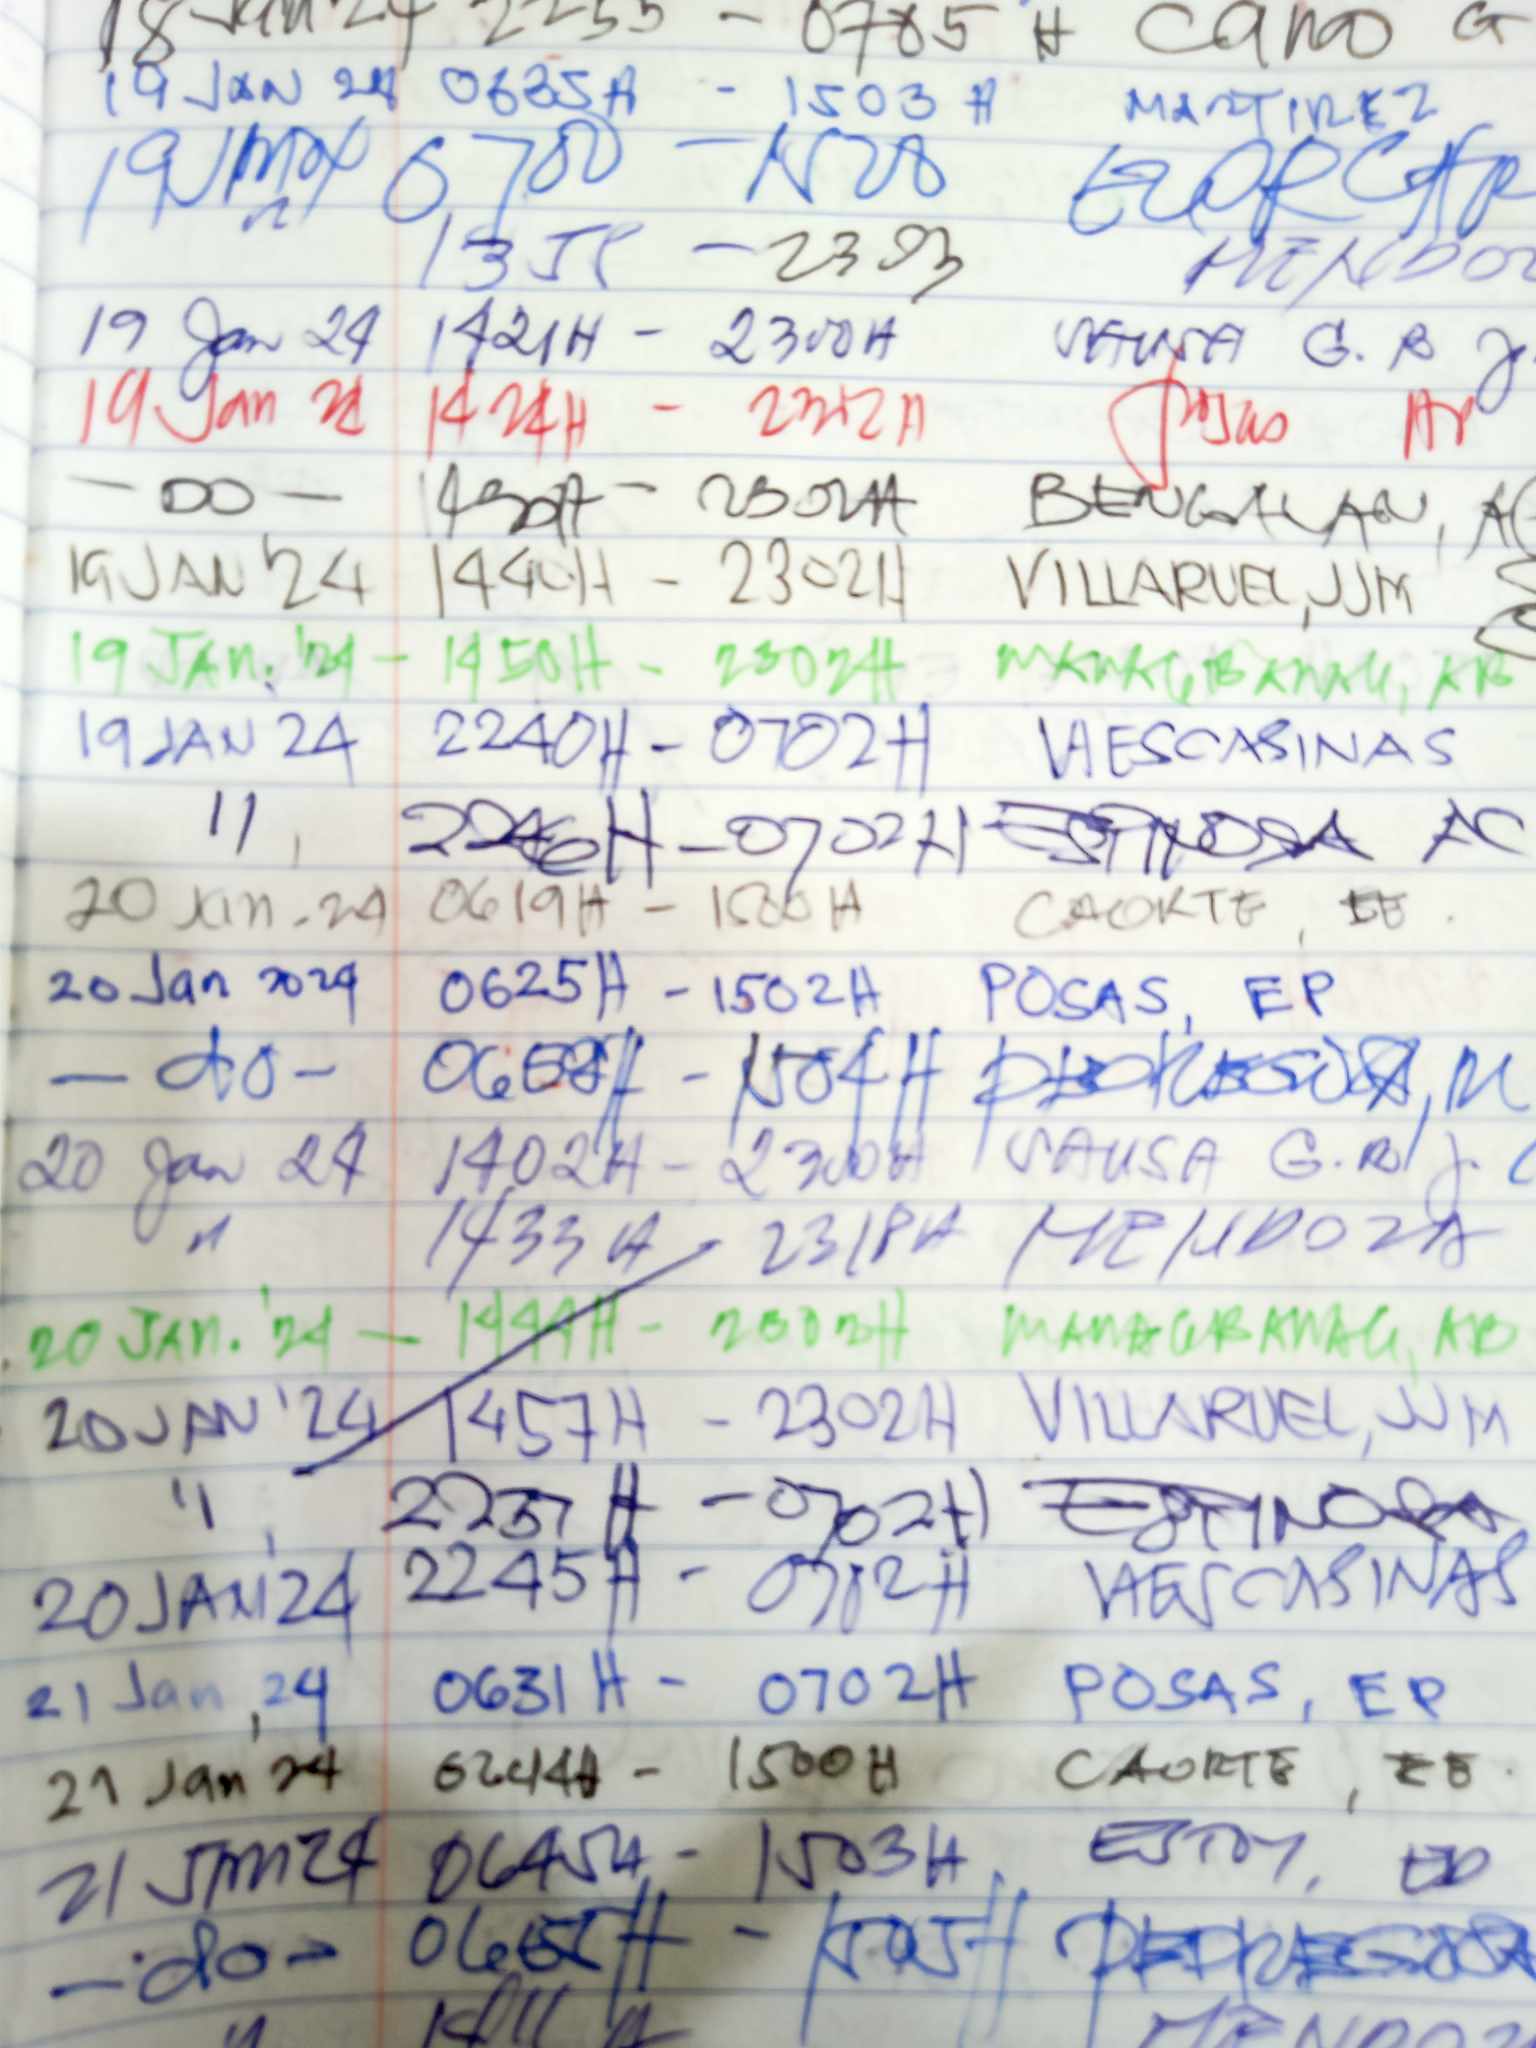 18 Jan 24 2255 - 0705 H Cano G
19 JAN 24 0635H - 1503 H MARTINEZ
0700 -
1355 - 2303 MENDOZ
19 Jan 24 1421H - 2300H SAUSA G. R J.
19 Jan 24 1424H - 2302H Rojas AP
- DO - 1430H - 2302H BENGALAN, AC
19 JAN '24 1440H - 2302H VILLARUEL, JJM
19 JAN. '24 - 1450H - 2302H MANAGBANAG, AB
19 JAN 24 2240H - 0702H VIESCABINAS
", 2246H - 0702H ESPINOSA AC
20 Jan. 24 0619H - 1500H CAORTE, EE.
20 Jan 2024 0625H - 1502H POSAS, EP
- do - 1504H PEDREGOSA, M
20 Jan 24 1402H - 2300H SAUSA G. R J.
" 1433H 2318H MENDOZA
20 JAN. '24 - 1444H - 2302H MANAGBANAG, AB
20 JAN '24 1457H - 2302H VILLARUEL, JJM
", 2237H - 0702H ESPINOSA
20 JAN '24 2245H - 0702H VIESCABINAS
21 Jan, 24 0631H - 0702H POSAS, EP
21 Jan '24 0644H - 1500H CAORTE, EE.
21 JAN 24 0645H - 1503H. ESTOY,
- do - 1505H PEDREGOSA
" MENDOZ